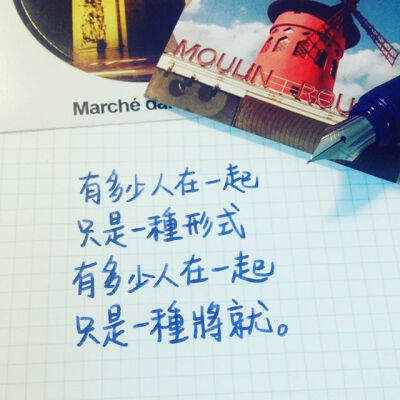 Marché da
MOULIN ROU
有多少人在一起
只是一種形式
有多少人在一起
只是一種將就。